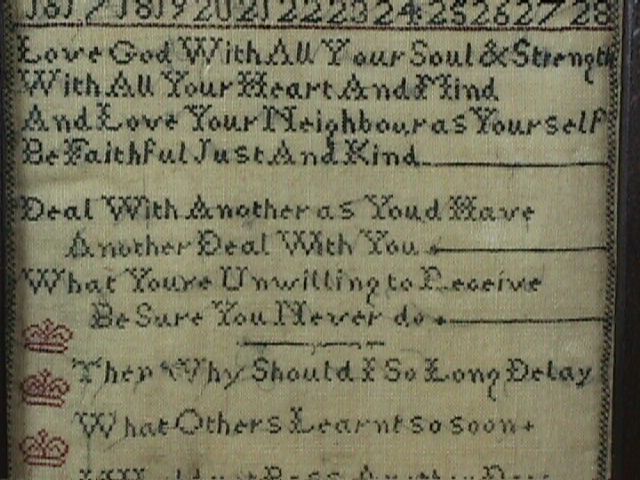 16 17 18 19 20 21 22 23 24 25 26 27 28
Love God With All Your Soul & Strength
With All Your Heart And Mind
And Love Your Neighbour as Your self
Be Faithful Just And Kind
Deal With Another as Youd Have
Another Deal With You
What Youre Unwilling to Receive
Be Sure You Never do
Then Why Should I So Long Delay
What Others Learnt so soon